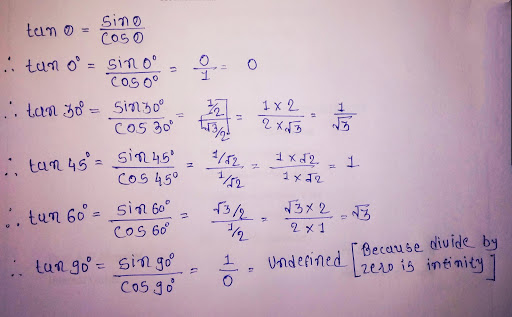 tan θ = sinθ / cosθ
∴ tan 0° = sin 0° / cos 0° = 0/1 = 0
∴ tan 30° = sin 30° / cos 30° = (1/2) / (√3/2) = (1 × 2) / (2 × √3) = 1/√3
∴ tan 45° = sin 45° / cos 45° = (1/√2) / (1/√2) = (1 × √2) / (1 × √2) = 1
∴ tan 60° = sin 60° / cos 60° = (√3/2) / (1/2) = (√3 × 2) / (2 × 1) = √3
∴ tan 90° = sin 90° / cos 90° = 1/0 = Undefined [Because divide by zero is infinity]